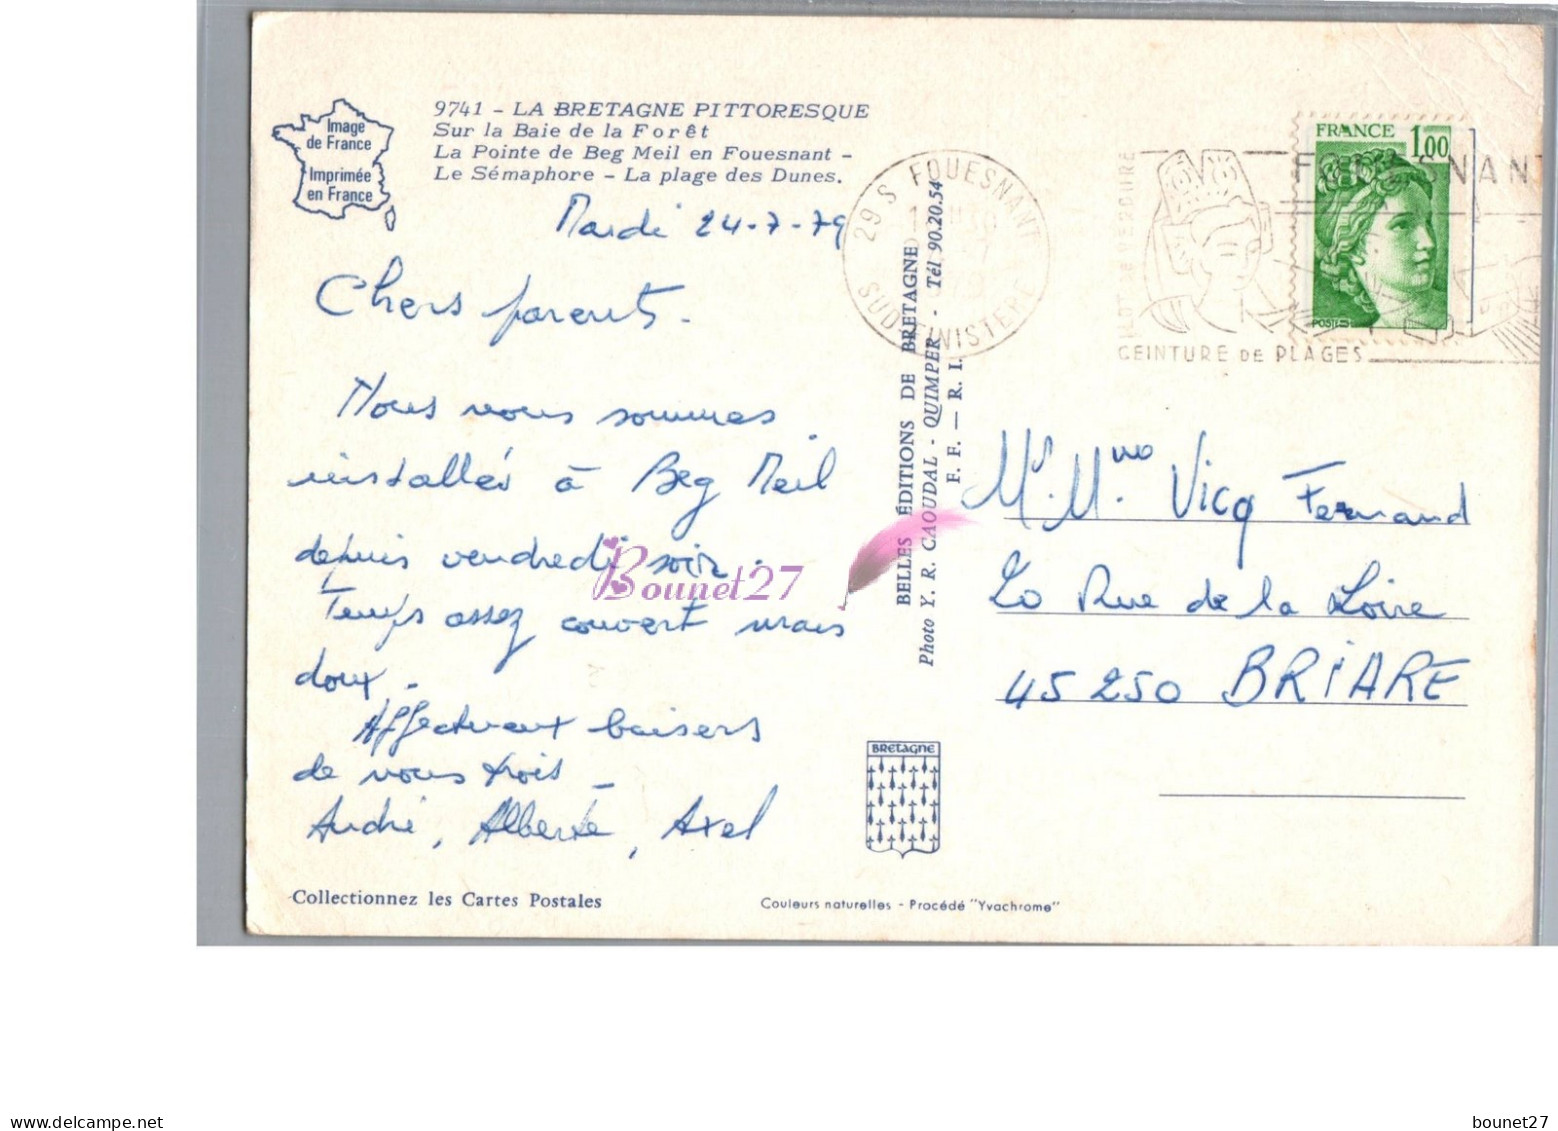 Image
de France
Imprimée
en France
9741 - LA BRETAGNE PITTORESQUE
Sur la Baie de la Forêt
La Pointe de Beg Meil en Fouesnant -
Le Sémaphore - La plage des Dunes.
Mardi 24-7-79
Chers parents.
Nous vous sommes
installés à Beg Meil
depuis vendredi soir.
Temps assez couvert mais
doux.
Affectueux baisers
de nous trois
André, Alberte, Axel
Collectionnez les Cartes Postales
Couleurs naturelles - Procédé "Yvachrome"
BELLES ÉDITIONS DE BRETAGNE
Photo Y. R. CAOUDAL - QUIMPER - Tél 90.20.54
F. F. — R. I.
29 S FOUESNANT
SUD-FINISTERE
FOUESNANT
ILOT de VERDURE
CEINTURE DE PLAGES
FRANCE 1,00
POSTES
Mr. Mme. Vicq Fernand
20 Rue de la Loire
45250 BRIARE
BRETAGNE
Bounet27
bounet27
www.delcampe.net